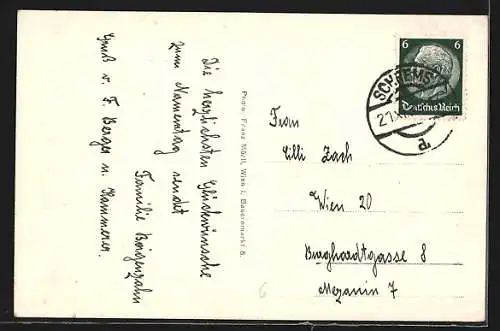 Die herzlichsten Glückwünsche
zum Namenstag sendet
Familie
Gruß v. F. Berger u. Kammerer.
Photo: Franz Mörtl, Wien I. Bauernmarkt 8.
6 6
Deutsches Reich
SCHREMS
21.XI
a
Frau
Cilli Zach
Wien 20
Burghardtgasse 8
Mezanin 7
6